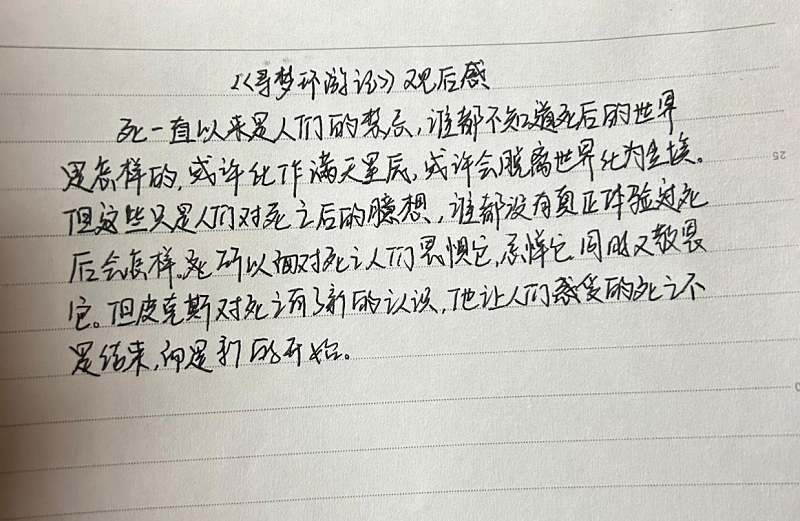 《寻梦环游记》观后感
死一直以来是人们的禁忌,谁都不知道死后的世界
是怎样的,或许化作满天星辰,或许会脱离世界化为尘埃。
但这些只是人们对死之后的臆想,谁都没有真正体验过死
后会怎样。死所以面对死之人们畏惧它,忌惮它同时又敬畏
它。但皮克斯对死之有了新的认识,他让人们感受的死之不
是结束,而是新的开始。
25